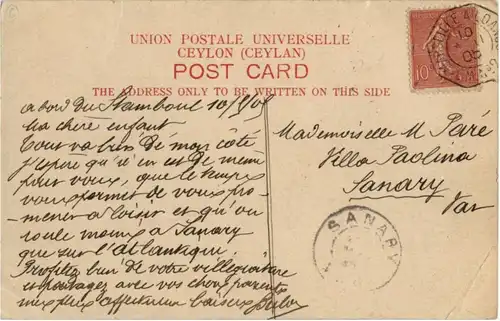 UNION POSTALE UNIVERSELLE
CEYLON (CEYLAN)
POST CARD
THE ADDRESS ONLY TO BE WRITTEN ON THIS SIDE
a bord du Stamboul 10/
Ma chère enfant
Tout va bien de mon côté
j'espère qu'il en est de même
pour vous, que le temps
vous permet de vous pro-
mener à loisir et qu'on
roule moins à Sanary
que sur l'Atlantique
Profitez bien de votre villégiature
et partagez avec vos chers parents
mes plus affectueux baisers
Mademoiselle M Paré
Villa Paolina
Sanary
Var
SANARY
10